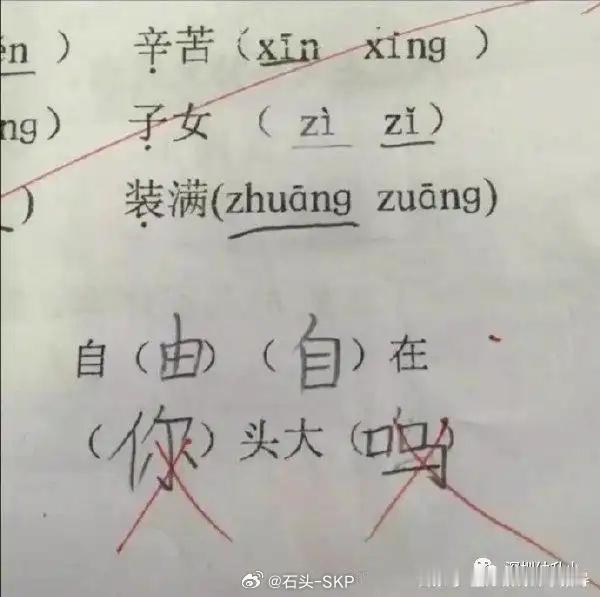 ěn ） 辛苦（xīn xing ）
ng） 子女 （ zì zǐ）
） 装满(zhuāng zuāng)
自（由）（自）在
（你）头大（吗）
@石头-SKP